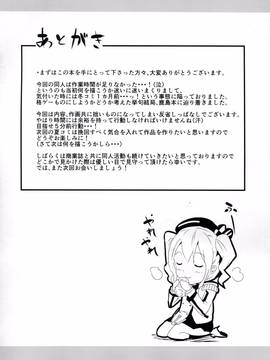 あとがき
・まずはこの本を手にとって下さった方々、大変ありがとうございます。
今回の同人は作業時間が足りなかった・・・！(泣)
というのも当初何を描こうか迷いに迷いまくりまして、
気付いた時には冬コミ１カ月前・・・っという事態に陥っておりました。
格ゲーものにしようかどうか考えた挙句結局、鹿島本に辿り着きました。
今回は内容、作画共に拙いものになってしまい反省しっぱなしでございます。
やはり時間には余裕を持って行動しなければいけませんね(汗)
目指せ５分前行動・・・！
次回の夏コミは挽回すべく気合を入れて作品を作りたいと思いますので
どうぞお楽しみに！
(さて次は何を描こうかしら・・・)
しばらくは商業誌と共に同人活動も続けていきたいと思っておりますので
どこかで見かけた際は優しい目で見守って頂けたら幸いです。
では、また次回お会いしましょう！
やれやれ